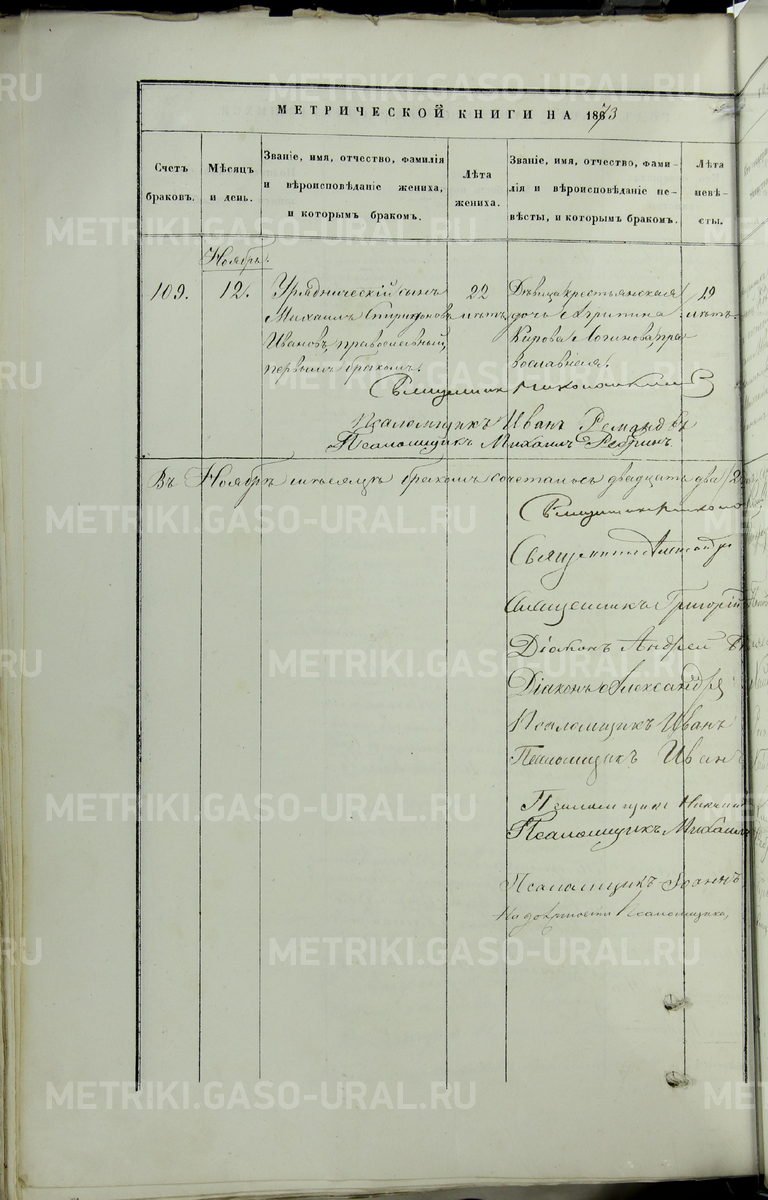 МЕТРИЧЕСКОЙ КНИГИ НА 1873
Счетъ браковъ.
Мѣсяцъ и день.
Званіе, имя, отчество, фамилія
и вѣроисповѣданіе жениха,
и которымъ бракомъ.
Лѣта жениха.
Званіе, имя, отчество, фами-
лія и вѣроисповѣданіе не-
вѣсты, и которымъ бракомъ.
Лѣта невѣ-
сты.
Ноябрь.
109.
12.
Урядническій сынъ
Михаилъ Спиридоновъ
Ивановъ, православный,
первымъ бракомъ.
22
лѣтъ
Дѣвица крестьянская
дочь Агрипина
Кирова Логинова, пра-
вославная.
19
лѣтъ.
Священникъ
Псаломщикъ Иванъ
Псаломщикъ Михаилъ Ребринъ
Въ Ноябрѣ мѣсяцѣ бракомъ сочеталось двадцать два
Священникъ
Священникъ
Священникъ Григорій
Діаконъ Андрей
Діаконъ Александръ
Псаломщикъ Иванъ
Псаломщикъ Иванъ
Псаломщикъ
Псаломщикъ Михаилъ
Псаломщикъ Іоаннъ
На должности псаломщика,
METRIKI.GASO-URAL.RU